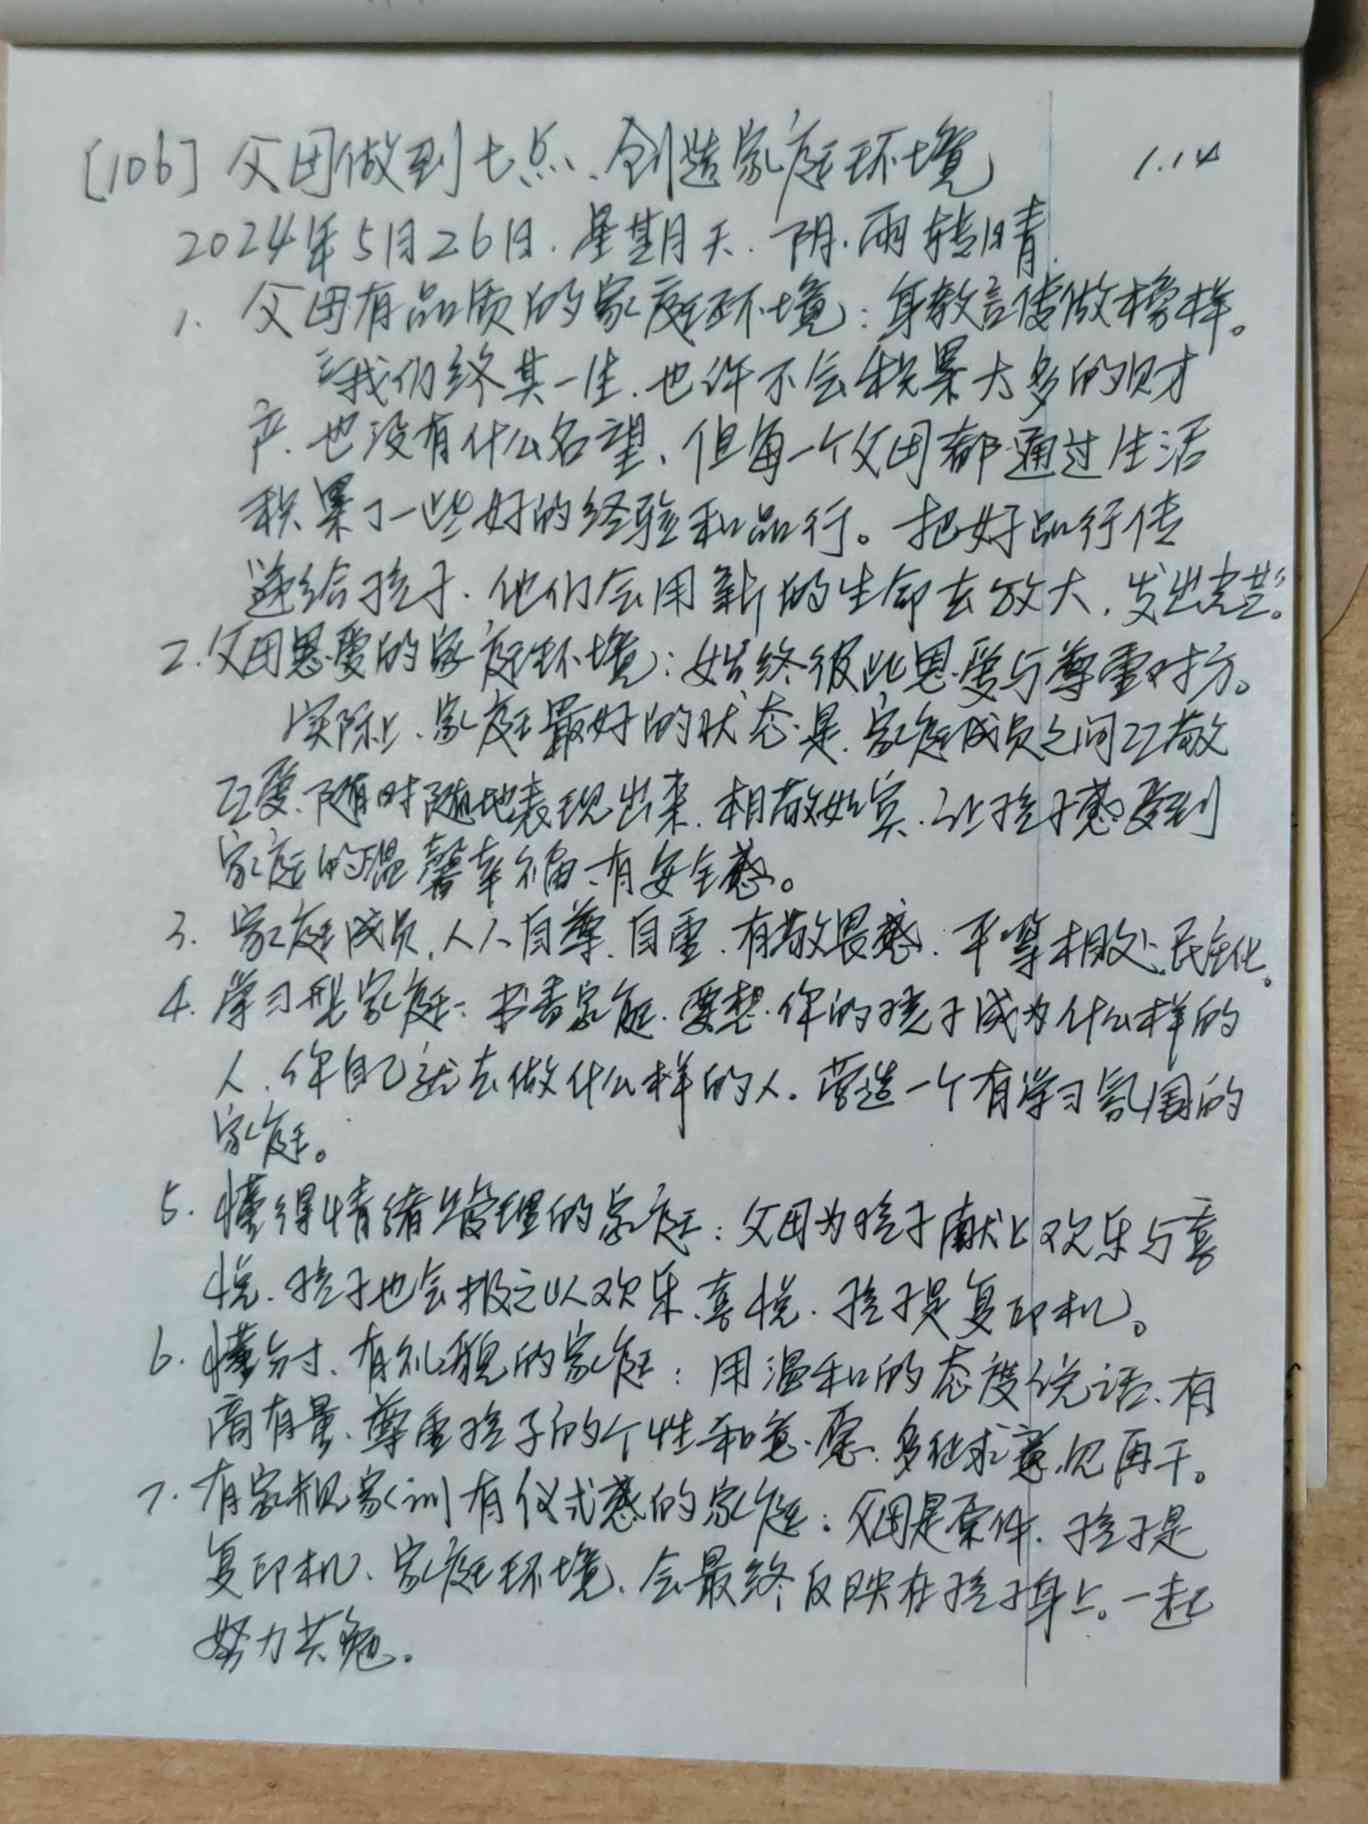 [106] 父母做到七点、创造家庭环境 1.14
2024年5月26日.星期天.阴.雨转晴.
1. 父母有品质的家庭环境：身教言传做榜样。
我们终其一生.也许不会积累太多的财
产.也没有什么名望、但每一个父母都通过生活
积累了一些好的经验和品行。把好品行传
递给孩子.他们会用新的生命去放大.发出光芒。
2.父母恩爱的家庭环境：始终彼此恩爱与尊重对方。
实际上、家庭最好的状态是.家庭成员之间互敬
互爱.随时随地表现出来.相敬如宾.让孩子感受到
家庭的温馨幸福、有安全感。
3. 家庭成员.人人自尊.自重.有敬畏感.平等相处、民主化。
4. 学习型家庭：书香家庭.要想你的孩子成为什么样的
人.你自己就去做什么样的人.营造一个有学习氛围的
家庭。
5. 懂得情绪管理的家庭：父母为孩子献上欢乐与喜
悦.孩子也会报之以欢乐、喜悦.孩子是复印机。
6. 懂分寸、有礼貌的家庭：用温和的态度说话、有
商有量、尊重孩子的个性和意愿.多征求意见再干。
7. 有家规家训有仪式感的家庭：父母是原件.孩子是
复印机、家庭环境、会最终反映在孩子身上。一起
努力共勉。